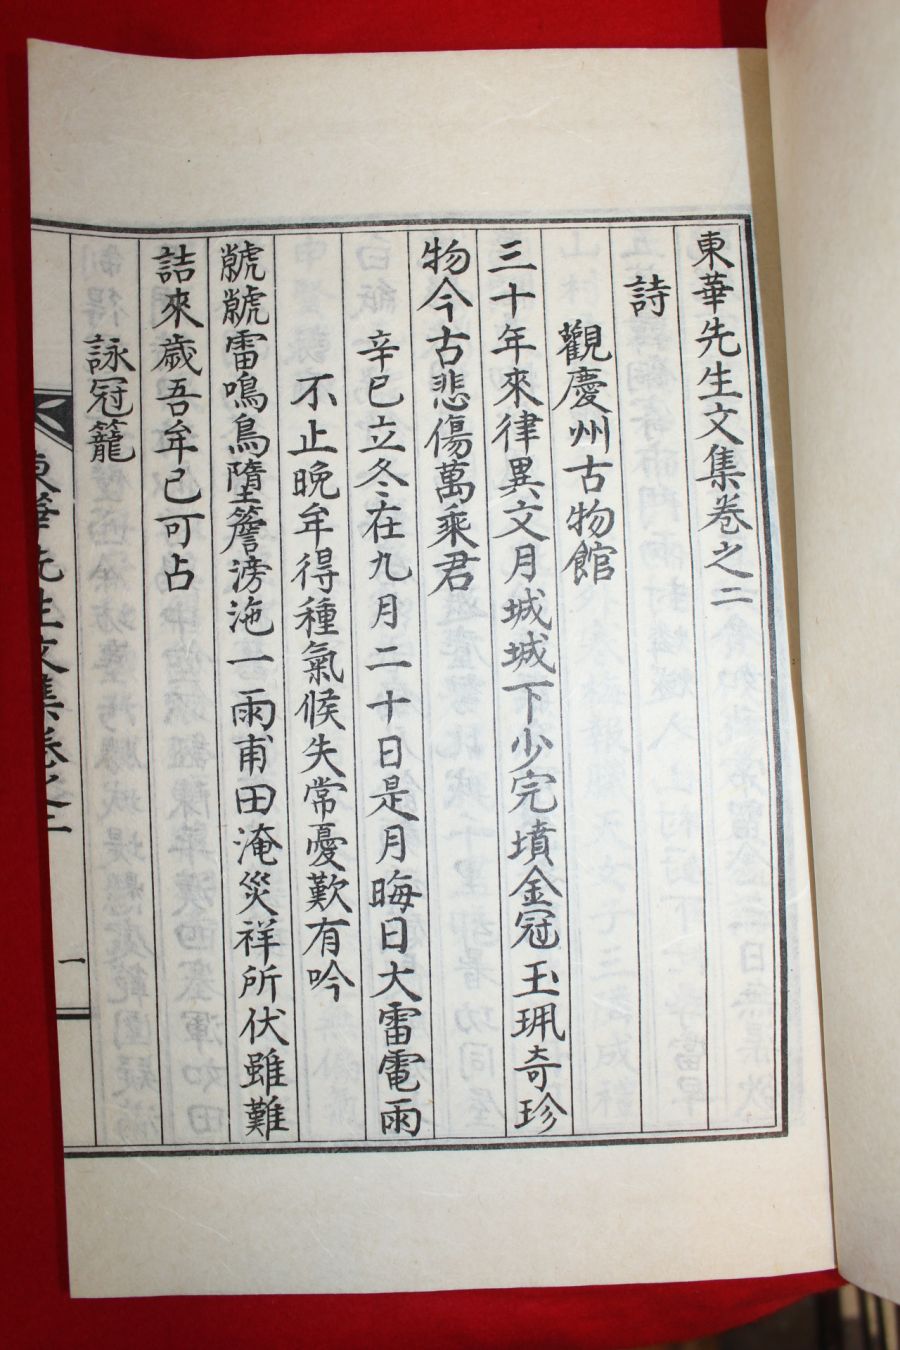 東華先生文集卷之二
詩
觀慶州古物館
三十年來律異文月城城下少完墳金冠玉珮奇珍
物今古悲傷萬乘君
辛巳立冬在九月二十日是月晦日大雷電雨
不止晩牟得種氣候失常憂歎有吟
虩虩雷鳴鳥墮簷滂沲一雨甫田淹災祥所伏雖難
詰來歲吾牟已可占
詠冠籠
東華先生文集卷之二
一